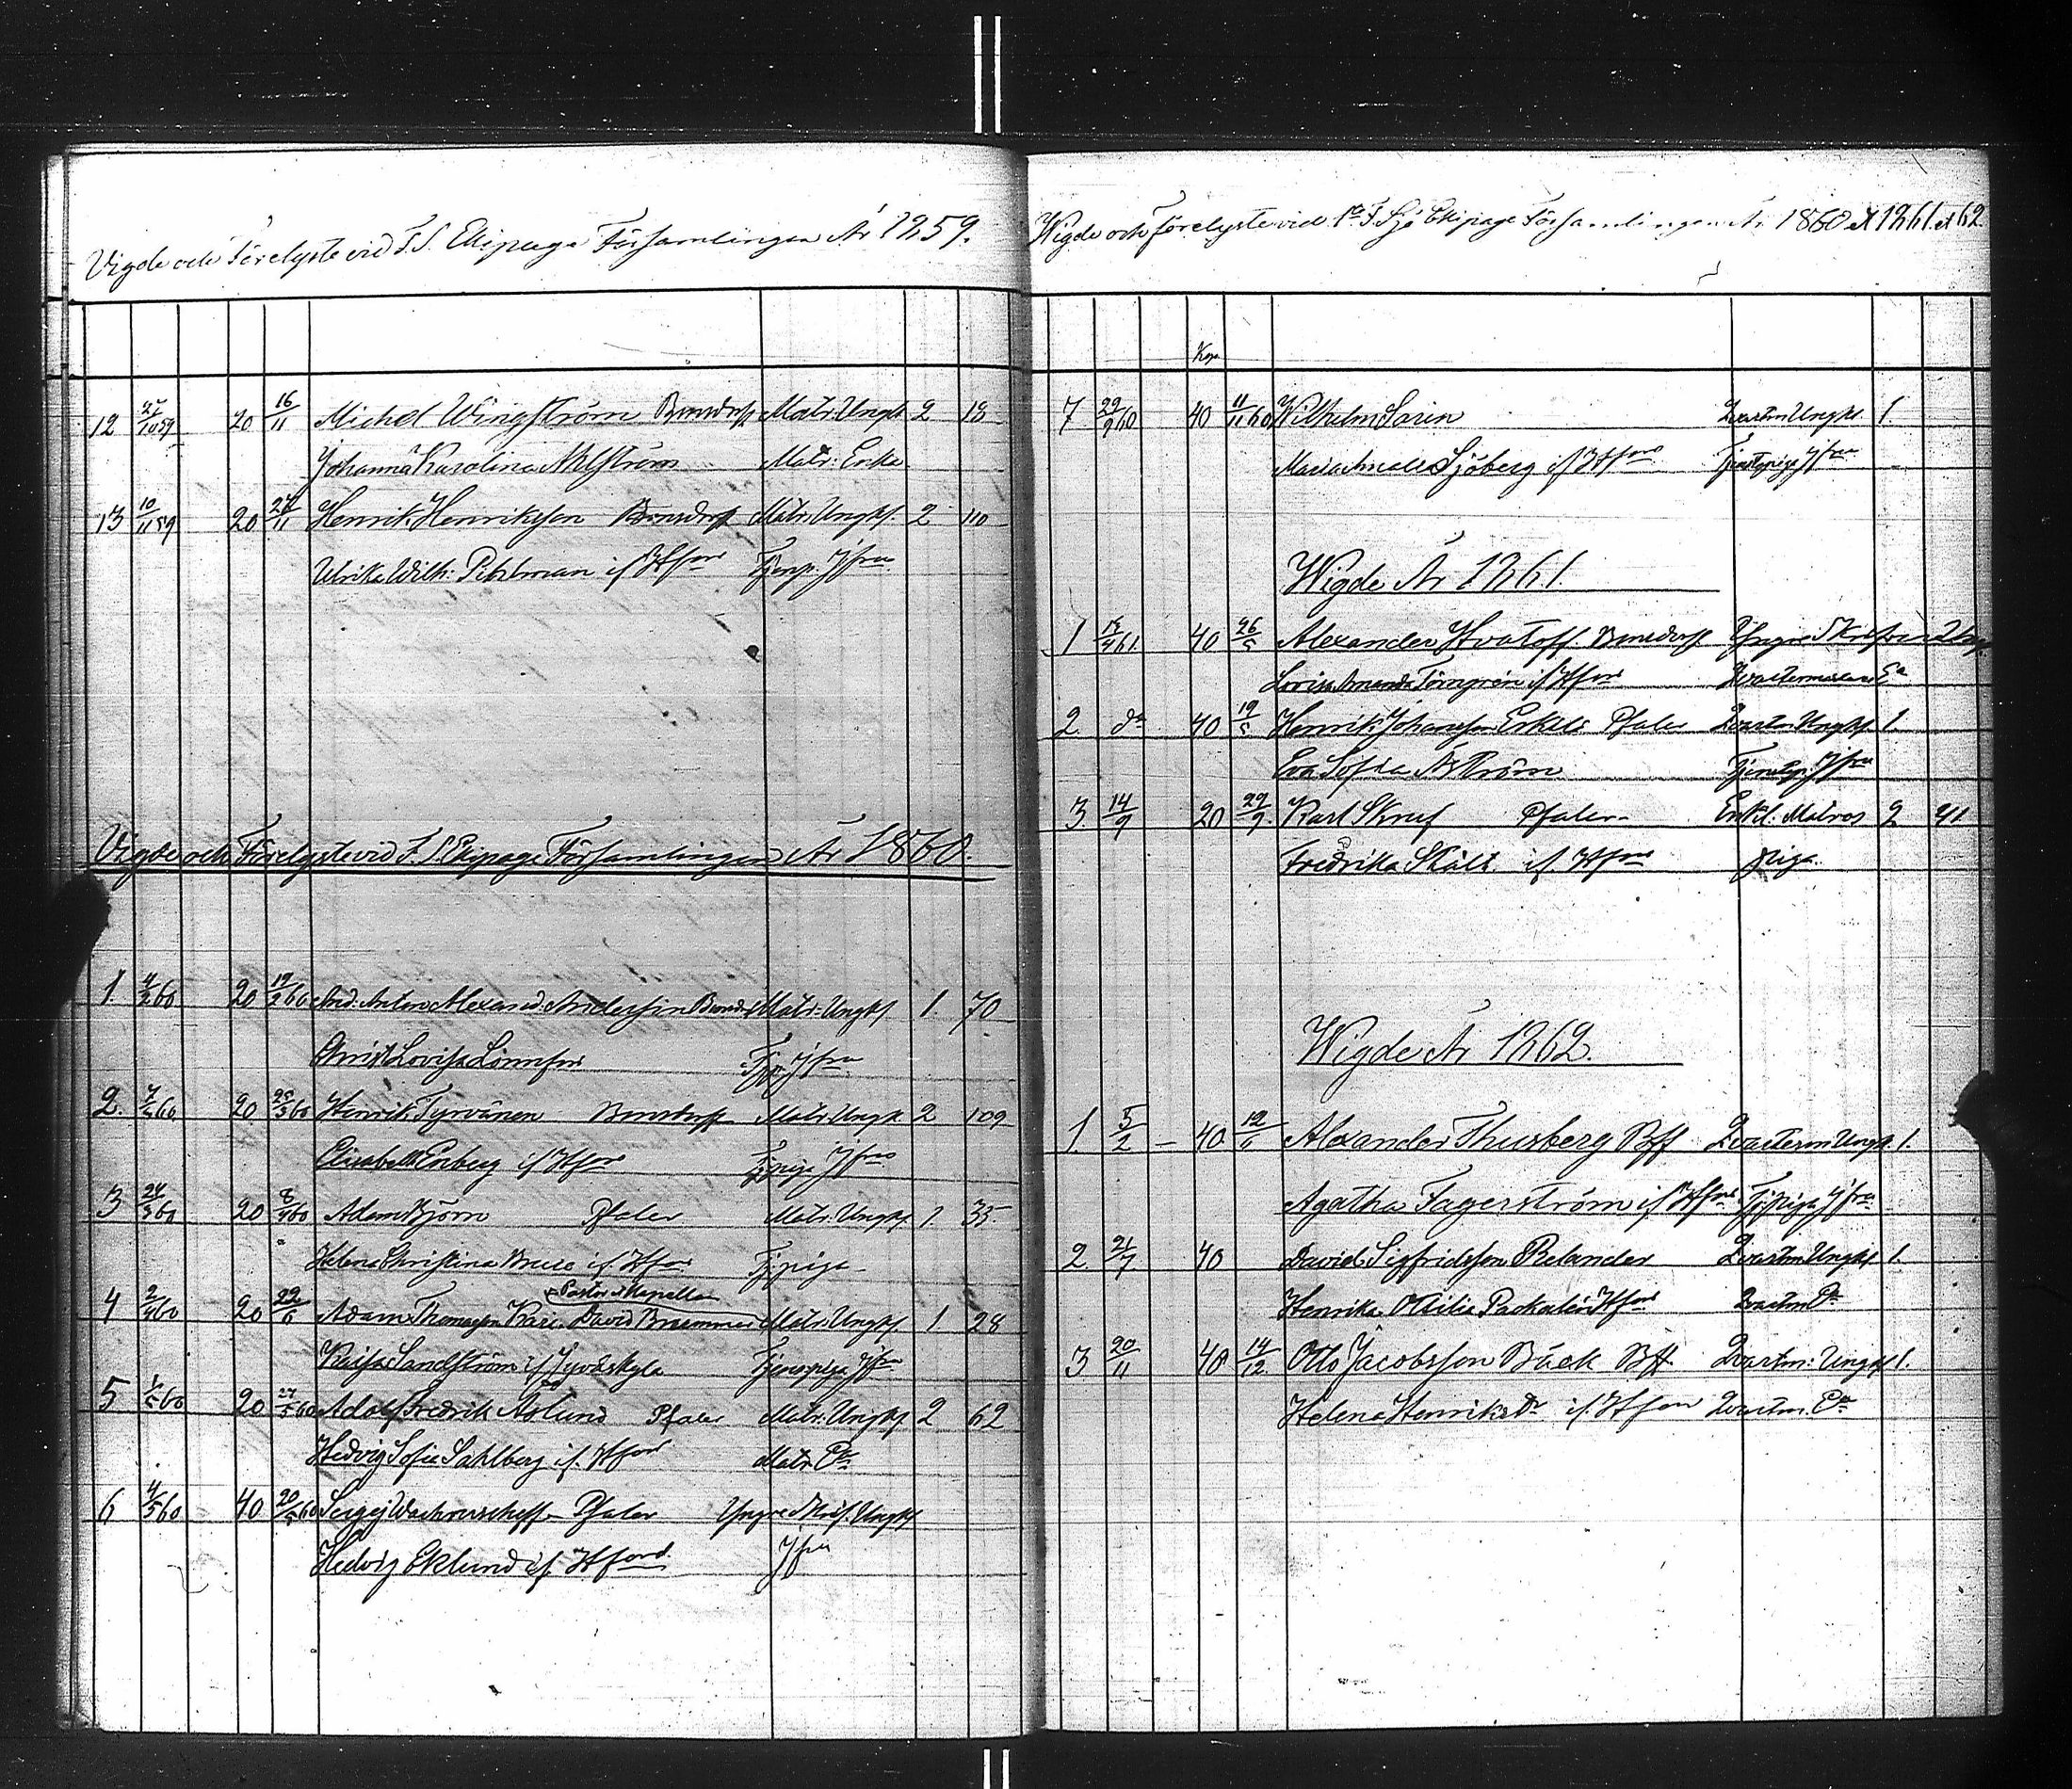 Vigde och Förelyste vid F. S. Ekipage Församlingen År 1859.
12 27/10 59 20 16/11 Michel Wingström Bonsdorff Matr: Ungk. 2 18
Johanna Karolina Ahlström Matr: Enka
13 10/11 59 20 27/11 Henrik Henriksson Bonsdorff Matr. Ungk. 2 110
Ulrika Wilh: Pihlman if Hfors Tjenp. Jfru
Vigde och Förelyste vid F. S Ekipage Församlingen År 1860.
1. 4/2 60 20 19/2 60 And: Anton Alexand: Andersin Bonsd Matr: Ungk 1. 70
Christ Lovisa Lönnfors Tjp Jfru
2. 7/3 60 20 25/3 60 Henrik Tyrvänen Bonsdorff Matr. Ungk. 2 109
Elisabeth Enberg if Hfors Tjpiga Jfru
3 24/3 60 20 8/4 60 Adam Björn Pfaler Matr. Ungk. 1. 35
Helena Christina if Hfors Tjpiga
Pastor Kapella
4 2/4 60 20 22/6 Adam Thomasson Kari David Brummer Matr. Ungk. 1 28
Kaisa Sandström if Jyväskylä Tjenspiga Jfru
5 1/5 60 20 27/5 60 Adolf Fredrik Aslund Pfaler Matr: Ungk 2 62
Hedvig Sofie Sahlberg if. Hfors Matr Dr
6 4/5 60 40 20/5 60 Sergej Pfaler Yngre Skrif. Ungk
Hedvig Eklund if. Hfors Jfru
Wigde och förelyste vid 1a F. Sjö Ekipage Församlingen År 1860 et 1861. et 62.
Kop
7 22/9 60 40 11/11 60 Wilhelm Sarin Qvartm Ungk. 1.
Maria Amalia Sjöberg if Hfors Tjenstpiga Jfru
Wigde År 1861.
1 18/4 61. 40 26/5 Alexander Bonsdorff Yngre Ung
Lovisa Amanda Törngren if Hfors Dr
2. do 40 19/5 Henrik Johansson Erkilä Pfaler Qvartm Ungk. 1.
Eva Sofia Åström Tjenstp. Jfru
3. 14/9 20 29/9. Karl Skruf Pfaler Enkl. Matros 2 41
Fredrika Skält if. Hfors Piga.
Wigde År 1862.
1. 5/2 – 40 12/ Alexander Thusberg Bff Qvarterm Ungk. 1.
Agatha Fagerström if Hfors Tjpiga Jfru
2. 21/7 40 David Sigfridsson Relander Qvartm Ungk 1.
Henrika Otilia Packalén Hfors Qvartm Dr
3 20/11 40 14/12. Otto Jacobsson Bäck Bff. Qvartm: Ungk 1.
Helena Henriksdr if. Hfors Qvartm. Dr